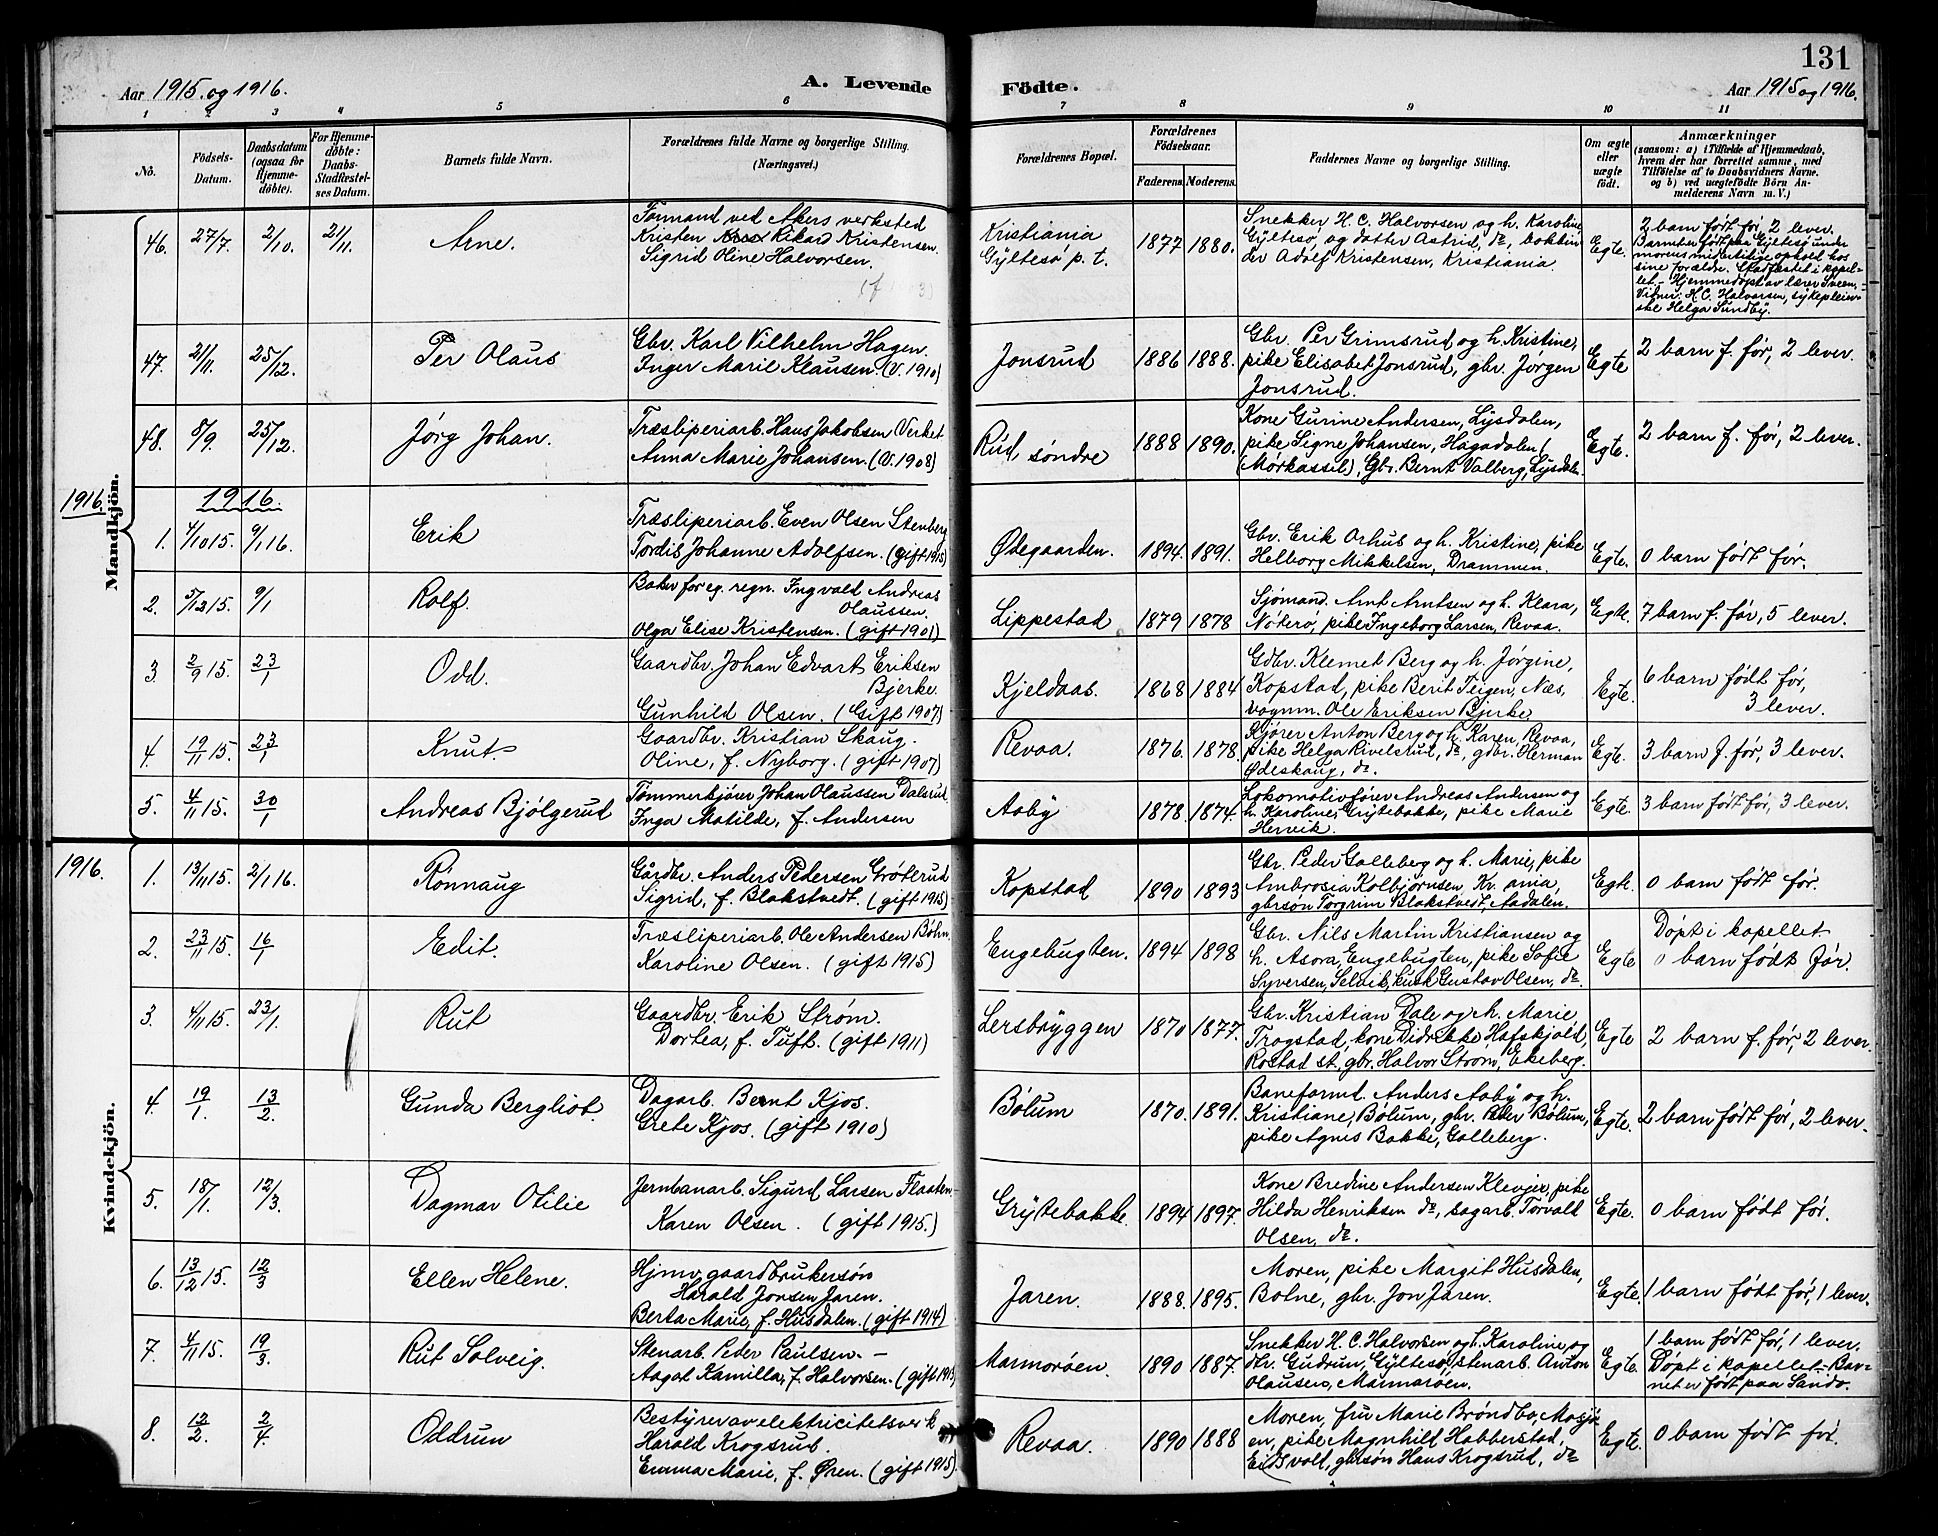 131
Aar 1915 og 1916.
A. Levende
Födte.
Aar 1915 og 1916.
1 2 3 4 5 6 7 8 9 10 11
No.
Födsels-
Datum.
Daabsdatum
(ogsaa for
Hjemme-
döbte).
For Hjemme-
döbte:
Daabs-
Stadfæstel-
ses Datum.
Barnets fulde Navn.
Forældrenes fulde Navne og borgerlige Stilling.
(Næringsvei.)
Forældrenes Bopæl.
Forældrenes
Födselsaar.
Faderens. Moderens.
Faddernes Navne og borgerlige Stilling.
Om ægte
eller
uægte
födt.
Anmærkninger
(saasom: a) i Tilfælde af Hjemmedaab,
hvem der har forrettet samme, med
Tilföielse af to Daabsvidners Navne.
og b) ved uægtefödte Börn An-
melderens Navn m. V.)
Mandkjön.
46. 27/7. 2/10. 21/11. Arne.
Formand ved Akers verksted
Kristen Rikard Kristensen
Sigrid Oline Halvorsen.
Kristiania
Gyltesø p. t.
1877 1880.
Snekker H. C. Halvorsen og h. Karoline,
Gyltesø, og datter Astrid, do, bokbin
der Adolf Kristensen, Kristiania.
Egte.
2 barn født før, 2 lever.
Barnet er født paa Gyltesø under
morens midlertidige ophold hos
sine forældre. Stadfæstet i kapel-
let. - Hjemmedøpt av lærer Sveen,
Vidner: H. C. Halvorsen, sykepleier-
ske Helga Sundby.
47. 21/11. 25/12. Per Olaus
Gbr. Karl Vilhelm Hagen.
Inger Marie Klausen. (V. 1910)
Jonsrud
1886 1888.
Gbr. Per Grimsrud og h. Kristine,
pike Elisabet Jonsrud, gbr. Jørgen
Jonsrud.
Egte
2 barn f. før, 2 lever.
48. 8/9. 25/12. Jørg Johan.
Træsliperiarb. Hans Jakobsen Verket
Anna Marie Johansen. (V. 1908)
Rud søndre
1888 1890.
Kone Gurine Andersen, Lysdalen,
pike Signe Johansen, Hagadalen,
(Mørkassel), Gbr. Bernt Valberg, Lysdalen
Egte.
2 barn f. før, 2 lever.
1916.
1916.
1. 4/10 15. 9/1 16. Erik
Træsliperiarb. Even Olsen Stenberg
Tordis Johanne Adolfsen. (gift 1915)
Ødegaarden.
1894. 1891.
Gbr. Erik Orhus og h. Kristine, pike
Helborg Mikkelsen, Drammen.
Egte.
0 barn født før.
2. 3/12 15. 9/1 Rolf.
Baker for eg. regn. Ingvald Andreas
Olaussen.
Olga Elise Kristensen. (gift 1901)
Lippestad
1879 1878
Sjømand. Arnt Arntsen og h. Klara,
Nøterø, pike Ingeborg Larsen, Revaa.
Egte.
7 barn f. før, 5 lever.
3. 2/9 15. 23/1 Odd.
Gaardbr. Johan Edvart Eriksen
Bjerke.
Gunhild Olsen. (Gift 1907)
Kjeldaas.
1868 1884
Gdbr. Klemet Berg og h. Jørgine,
Kopstad, pike Berit Teigen, Næs,
vognm. Ole Eriksen Bjerke
Egte.
6 barn født før,
3 lever.
4. 19/11 15. 23/1 Knut
Gaardbr. Kristian Skaug.
Oline, f. Nyborg. (gift 1907)
Revaa.
1876. 1878.
Kjører Anton Berg og h. Karen, Revaa,
pike Helga Rivelsrud, do, gdbr. Herman
Ødeskaug, do.
Egte.
3 barn f. før, 3 lever.
5. 4/11 15. 30/1 Andreas Bjølgerud
Tømmerkjører Johan Olaussen Dalsrud
Inga Matilde, f. Andersen
Aaby
1878. 1874.
Lokomotivfører Andreas Andersen og
h. Karoline, Grytebakke, pike Marie
Hervik.
Egte.
3 barn født før, 3 lever.
Kvindekjön.
1916.
1. 13/11 15. 2/1 16. Rønnaug
Gårdbr. Anders Pedersen Grøterud
Sigrid, f. Blakstvedt. (gift 1915)
Kopstad
1890 1893
Gbr. Peder Galleberg og h. Marie, pike
Ambrosia Kolbjørnsen, Kr.ania,
gbrsøn Torgrim Blakstvedt, Aadalen.
Egte.
0 barn født før.
2. 23/11 15. 16/1 Edit.
Træsliperiarb. Ole Andersen Bøhn.
Karoline Olsen. (gift 1915)
Engebugten.
1894 1898
Gbr. Nils Martin Kristiansen og
h. Asora, Engebugten, pike Sofie
Syversen, Selvik, kusk Gustav Olsen, do
Egte
Døpt i kapellet
0 barn født før.
3. 4/11 15. 23/1. Rut
Gaardbr. Erik Strøm.
Dortea, f. Tuft. (gift 1911)
Lersbryggen
1870 1877.
Gbr. Kristian Dale og h. Marie
Trogstad, kone Didrikke Hafskjold,
Rostad st., gbr. Halvor Strøm, Ekeberg.
Egte
2 barn f. før, 2 lever.
4. 19/1. 13/2. Gunda Bergliot.
Dagarb. Bernt Kjos.
Grete Kjos. (gift 1910)
Bølum
1870. 1891.
Baneformd. Anders Aaby og h.
Kristiane, Bølum, gbr. Peder Bølum,
pike Agnes Bakke, Galleberg.
Egte.
2 barn født før, 2 lever.
5. 18/1. 12/3. Dagmar Otilie
Jernbanarb. Sigurd Larsen Flaaten
Karen Olsen. (gift 1915)
Grytebakke
1894 1897.
Kone Bredine Andersen Klevjer, pike
Hilda Henriksen do, sagarb. Torvald
Olsen, do.
Egte.
0 barn født før.
6. 13/12 15. 12/3 Ellen Helene.
Hjmv. gaardbrukersøn
Harald Jonsen Jaren.
Berta Marie, f. Husdalen. (gift 1914)
Jaren.
1888. 1895.
Moren, pike Margit Husdalen,
Bolne, gbr. Jon Jaren.
Egte.
1 barn født før, 1 lever.
7. 4/11 15. 19/3. Rut Solveig.
Stenarb. Peder Paulsen. -
Aagot Kamilla, f. Halvorsen. (gift 1913)
Marmorøen.
1890 1887.
Snekker H. C. Halvorsen og h. Karoline og
dtr. Gudrun, Gyltesø, stenarb. Anton
Olausen, Marmorøen.
Egte.
1 barn født før, 1 lever.
Døpt i kapellet. - Bar-
net er født paa Sandø.
8. 12/2. 2/4. Oddrun
Bestyrer av elektricitetsverk
Harald Krogsrud.
Emma Marie, f. Øren. (gift 1915).
Revaa.
1890 1888
Moren, fru Marie Brøndbo, Mosjø-
en, pike Magnhild Habberstad,
Eidsvold, gbrsøn Hans Krogsrud, do
Egte.
0 barn født før.